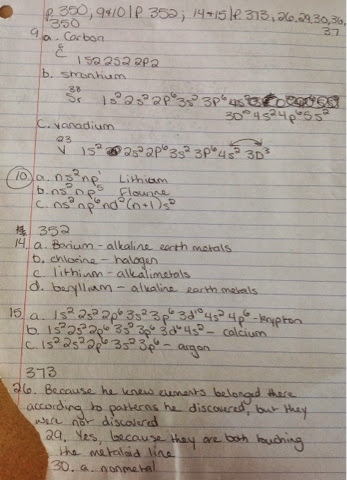 p. 350, 9+10 | p. 352; 14+15 | p. 373; 26, 29, 30, 36,
350 37
9. a. Carbon
6
C 1s2 2s2 2p2
b. strontium
38
Sr 1s² 2s² 2p⁶ 3s² 3p⁶ 4s²
3D¹⁰ 4s² 4p⁶ 5s²
c. vanadium
23
V 1s² 2s² 2p⁶ 3s² 3p⁶ 4s² 3D³
10. a. ns² np¹ Lithium
b. ns² np⁵ Flourine
c. ns² np⁶ nd² (n+1)s²
352
14. a. Barium - alkaline earth metals
b. chlorine - halogen
c. lithium - alkalimetals
d. beryllium - alkaline earth metals
15. a. 1s² 2s² 2p⁶ 3s² 3p⁶ 3d¹⁰ 4s² 4p⁶ - krypton
b. 1s² 2s² 2p⁶ 3s² 3p⁶ 3d⁶ 4s² - calcium
c. 1s² 2s² 2p⁶ 3s² 3p⁶ - argon
373
26. Because he knew elements belonged there
according to patterns he discovered, but they
were not discovered
29. Yes, because they are both touching
the metaloid line
30. a. nonmetal